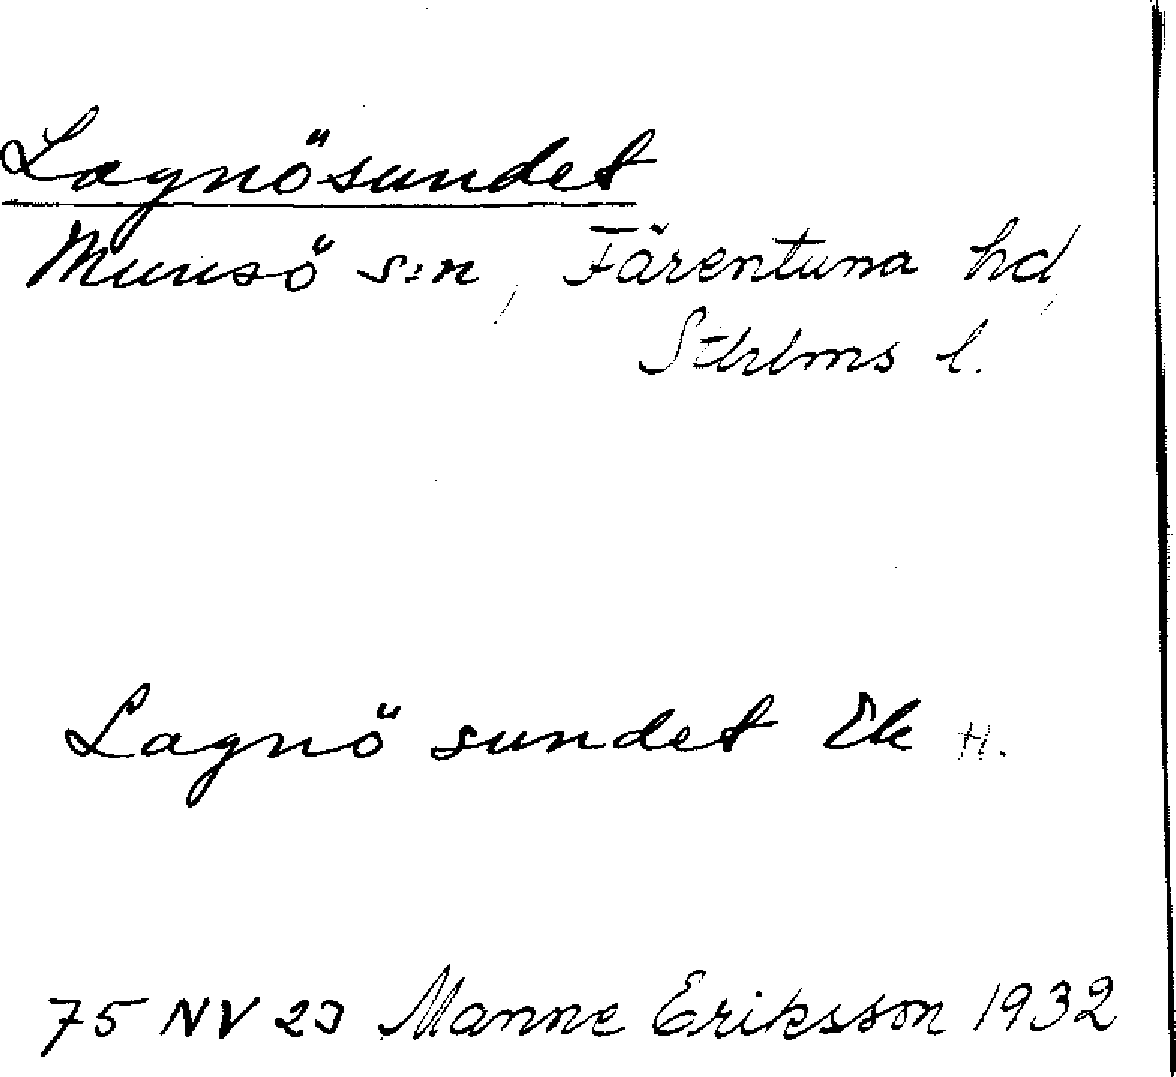 Lagnösundet
Munsö s:n, Färentuna hd,
Sthlms l.
Lagnö sundet Ek H.
75 NV 23 Manne Eriksson 1932